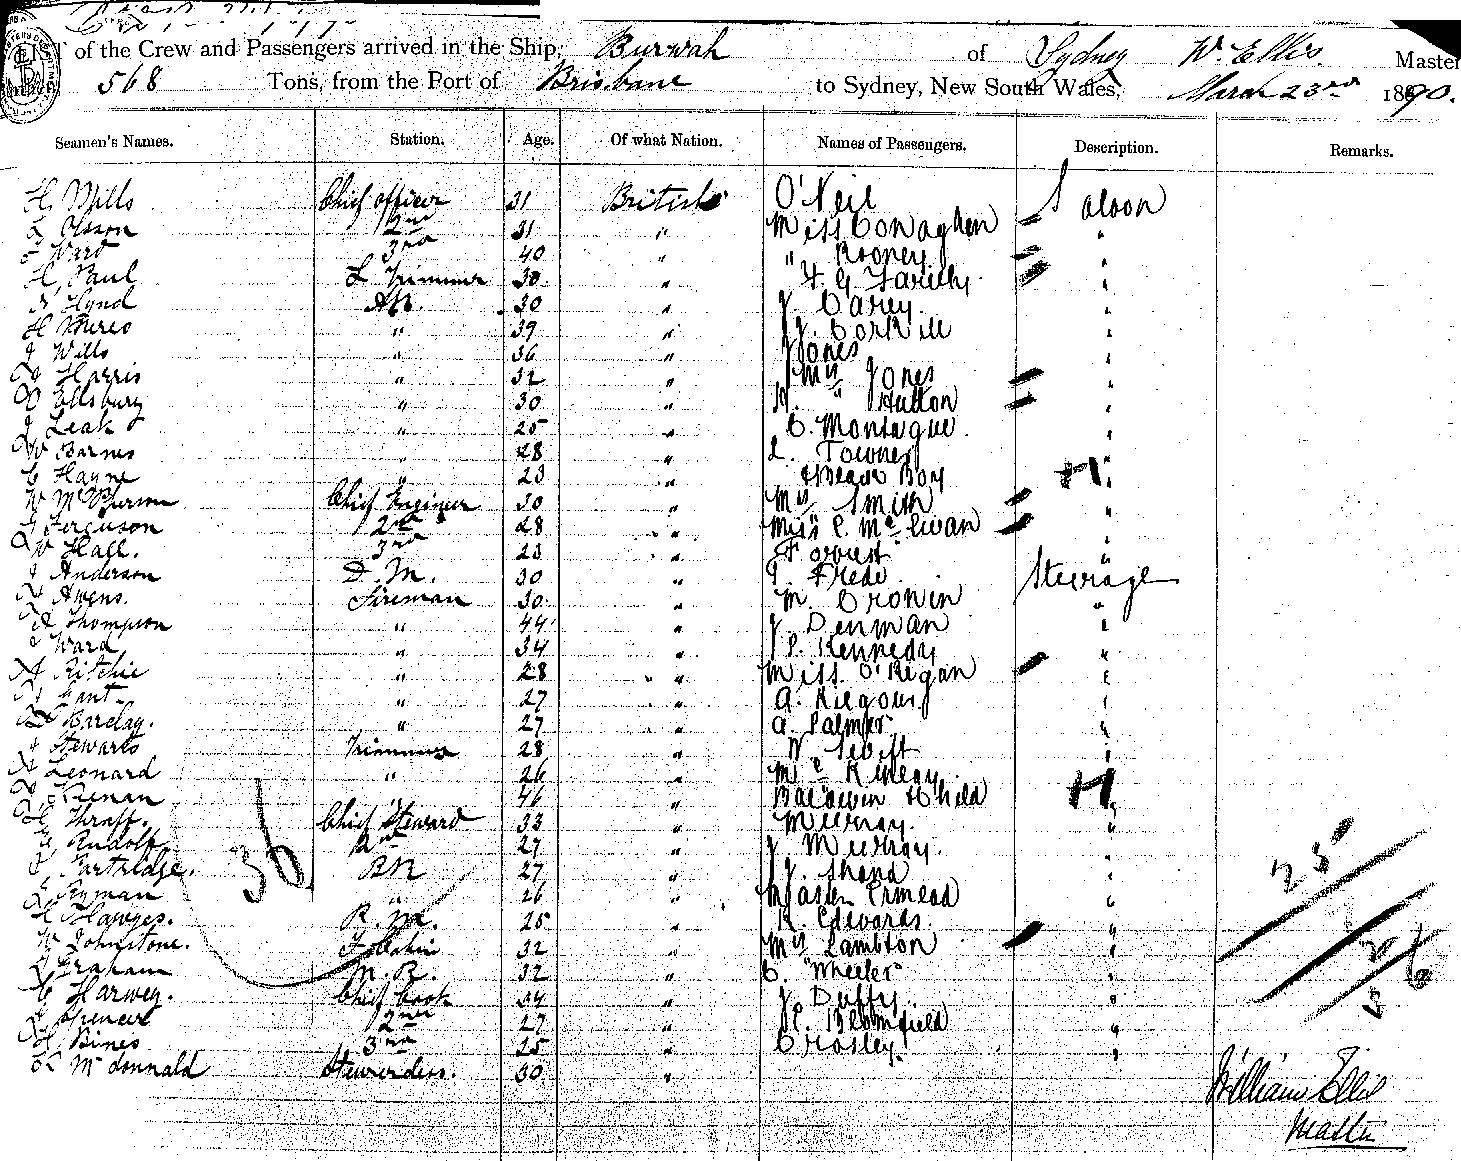 of the Crew and Passengers arrived in the Ship, Burwah of Sydney W. Ellis. Master
568 Tons, from the Port of Brisbane to Sydney, New South Wales, March 23rd 1890.
Seamen's Names. Station. Age. Of what Nation. Names of Passengers. Description. Remarks.
H Mills Chief officer 31 British O'Neil Saloon
Olsson 2nd 31 " Miss Conaghen "
Ward 3rd 40 " " Rooney "
H Paul L Trimmer 30 " "
Hynd AB. 30 " J. Carey "
H " 39 " J. Corkill "
J Wills " 36 " Jones "
Harris " 32 " Mrs Jones "
Ellsbury " 30 " " Hutton "
J Leak " 25 " C. Montague "
W Barnes " 28 " L. Towner "
C Hayne " 23 " Boy "
W McPherson Chief Engineer 30 " Mrs Smith "
Ferguson 2nd 28 " Miss C. McEwan "
W Hall. 3rd 23 " Forrest "
J Anderson D. M. 30 " Frede Steerage
Awens. Fireman 30 " M. Cronin "
Thompson " 44 " J. Denman "
Ward " 34 " J P. Kennedy "
Ritchie " 28 " Miss O'Regan "
" 27 " A. Kilgour "
Barclay. " 27 " A. Palmer "
Stewart Trimmer 28 " W. Swift "
Leonard " 26 " "
Keenan " 46 " Baldwin & Child "
Chief Steward 33 " Murray. "
Rudolf 2nd 27 " J. Murray. "
Partridge. BR 27 " J. Shand "
Ryman " 26 " Master "
H Hawyes. R. M. 25 " R. Edwards "
W Johnstone. 32 " Mrs Lambton "
Graham M. R. 32 " C. Wheeler "
C Harwey. Chief Cook 34 " J. Duffy. "
Spencer 2nd 27 " J P. Blomfield "
H Bines 3rd 25 " Crosley. "
McDonnald Stewardess. 30 "
36
25
William Ellis
Master